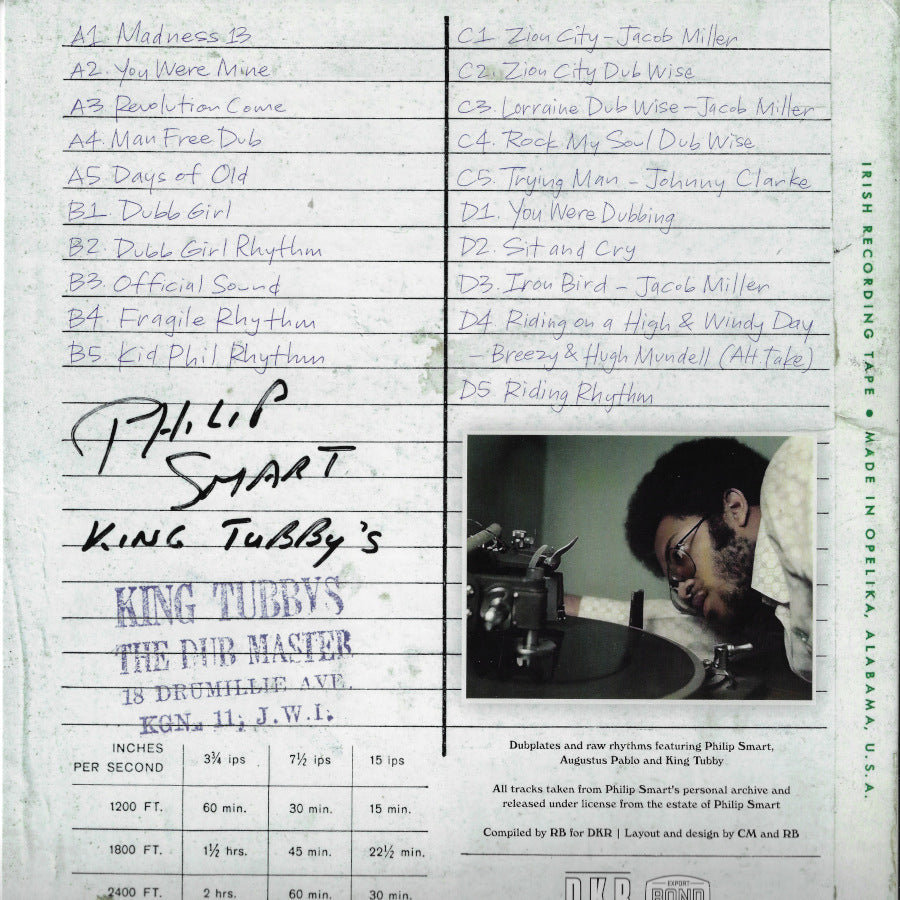 A1. Madness 13
A2. You Were Mine
A3. Revolution Come
A4. Man Free Dub
A5. Days of Old
B1. Dubb Girl
B2. Dubb Girl Rhythm
B3. Official Sound
B4. Fragile Rhythm
B5. Kid Phil Rhythm
C1. Zion City - Jacob Miller
C2. Zion City Dub Wise
C3. Lorraine Dub Wise - Jacob Miller
C4. Rock My Soul Dub Wise
C5. Trying Man - Johnny Clarke
D1. You Were Dubbing
D2. Sit and Cry
D3. Iron Bird - Jacob Miller
D4. Riding on a High & Windy Day
- Breezy & Hugh Mundell (Alt. Take)
D5. Riding Rhythm
PHILIP
SMART
KING TUBBY'S
KING TUBBYS
THE DUB MASTER
18 DRUMILLIE AVE.
KGN. 11, J.W.I.
INCHES PER SECOND 3¾ ips 7½ ips 15 ips
1200 FT. 60 min. 30 min. 15 min.
1800 FT. 1½ hrs. 45 min. 22½ min.
2400 FT. 2 hrs. 60 min. 30 min.
Dubplates and raw rhythms featuring Philip Smart,
Augustus Pablo and King Tubby
All tracks taken from Philip Smart's personal archive and
released under license from the estate of Philip Smart
Compiled by RB for DKR | Layout and design by CM and RB
DKR
EXPORT
BOND
IRISH RECORDING TAPE • MADE IN OPELIKA, ALABAMA, U.S.A.